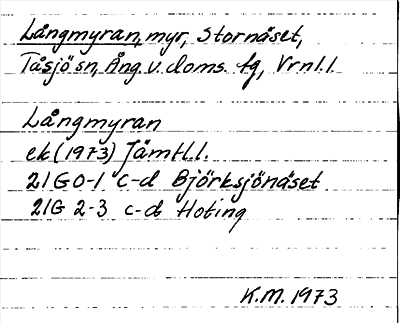 Långmyran, myr, Stornäset,
Tåsjö sn, Ång. v. doms. fg, Vrnl. l.
Långmyran
ek (1973) Jämtl. l.
21G 0-1 c-d Björksjönäset
21G 2-3 c-d Hoting
K.M. 1973